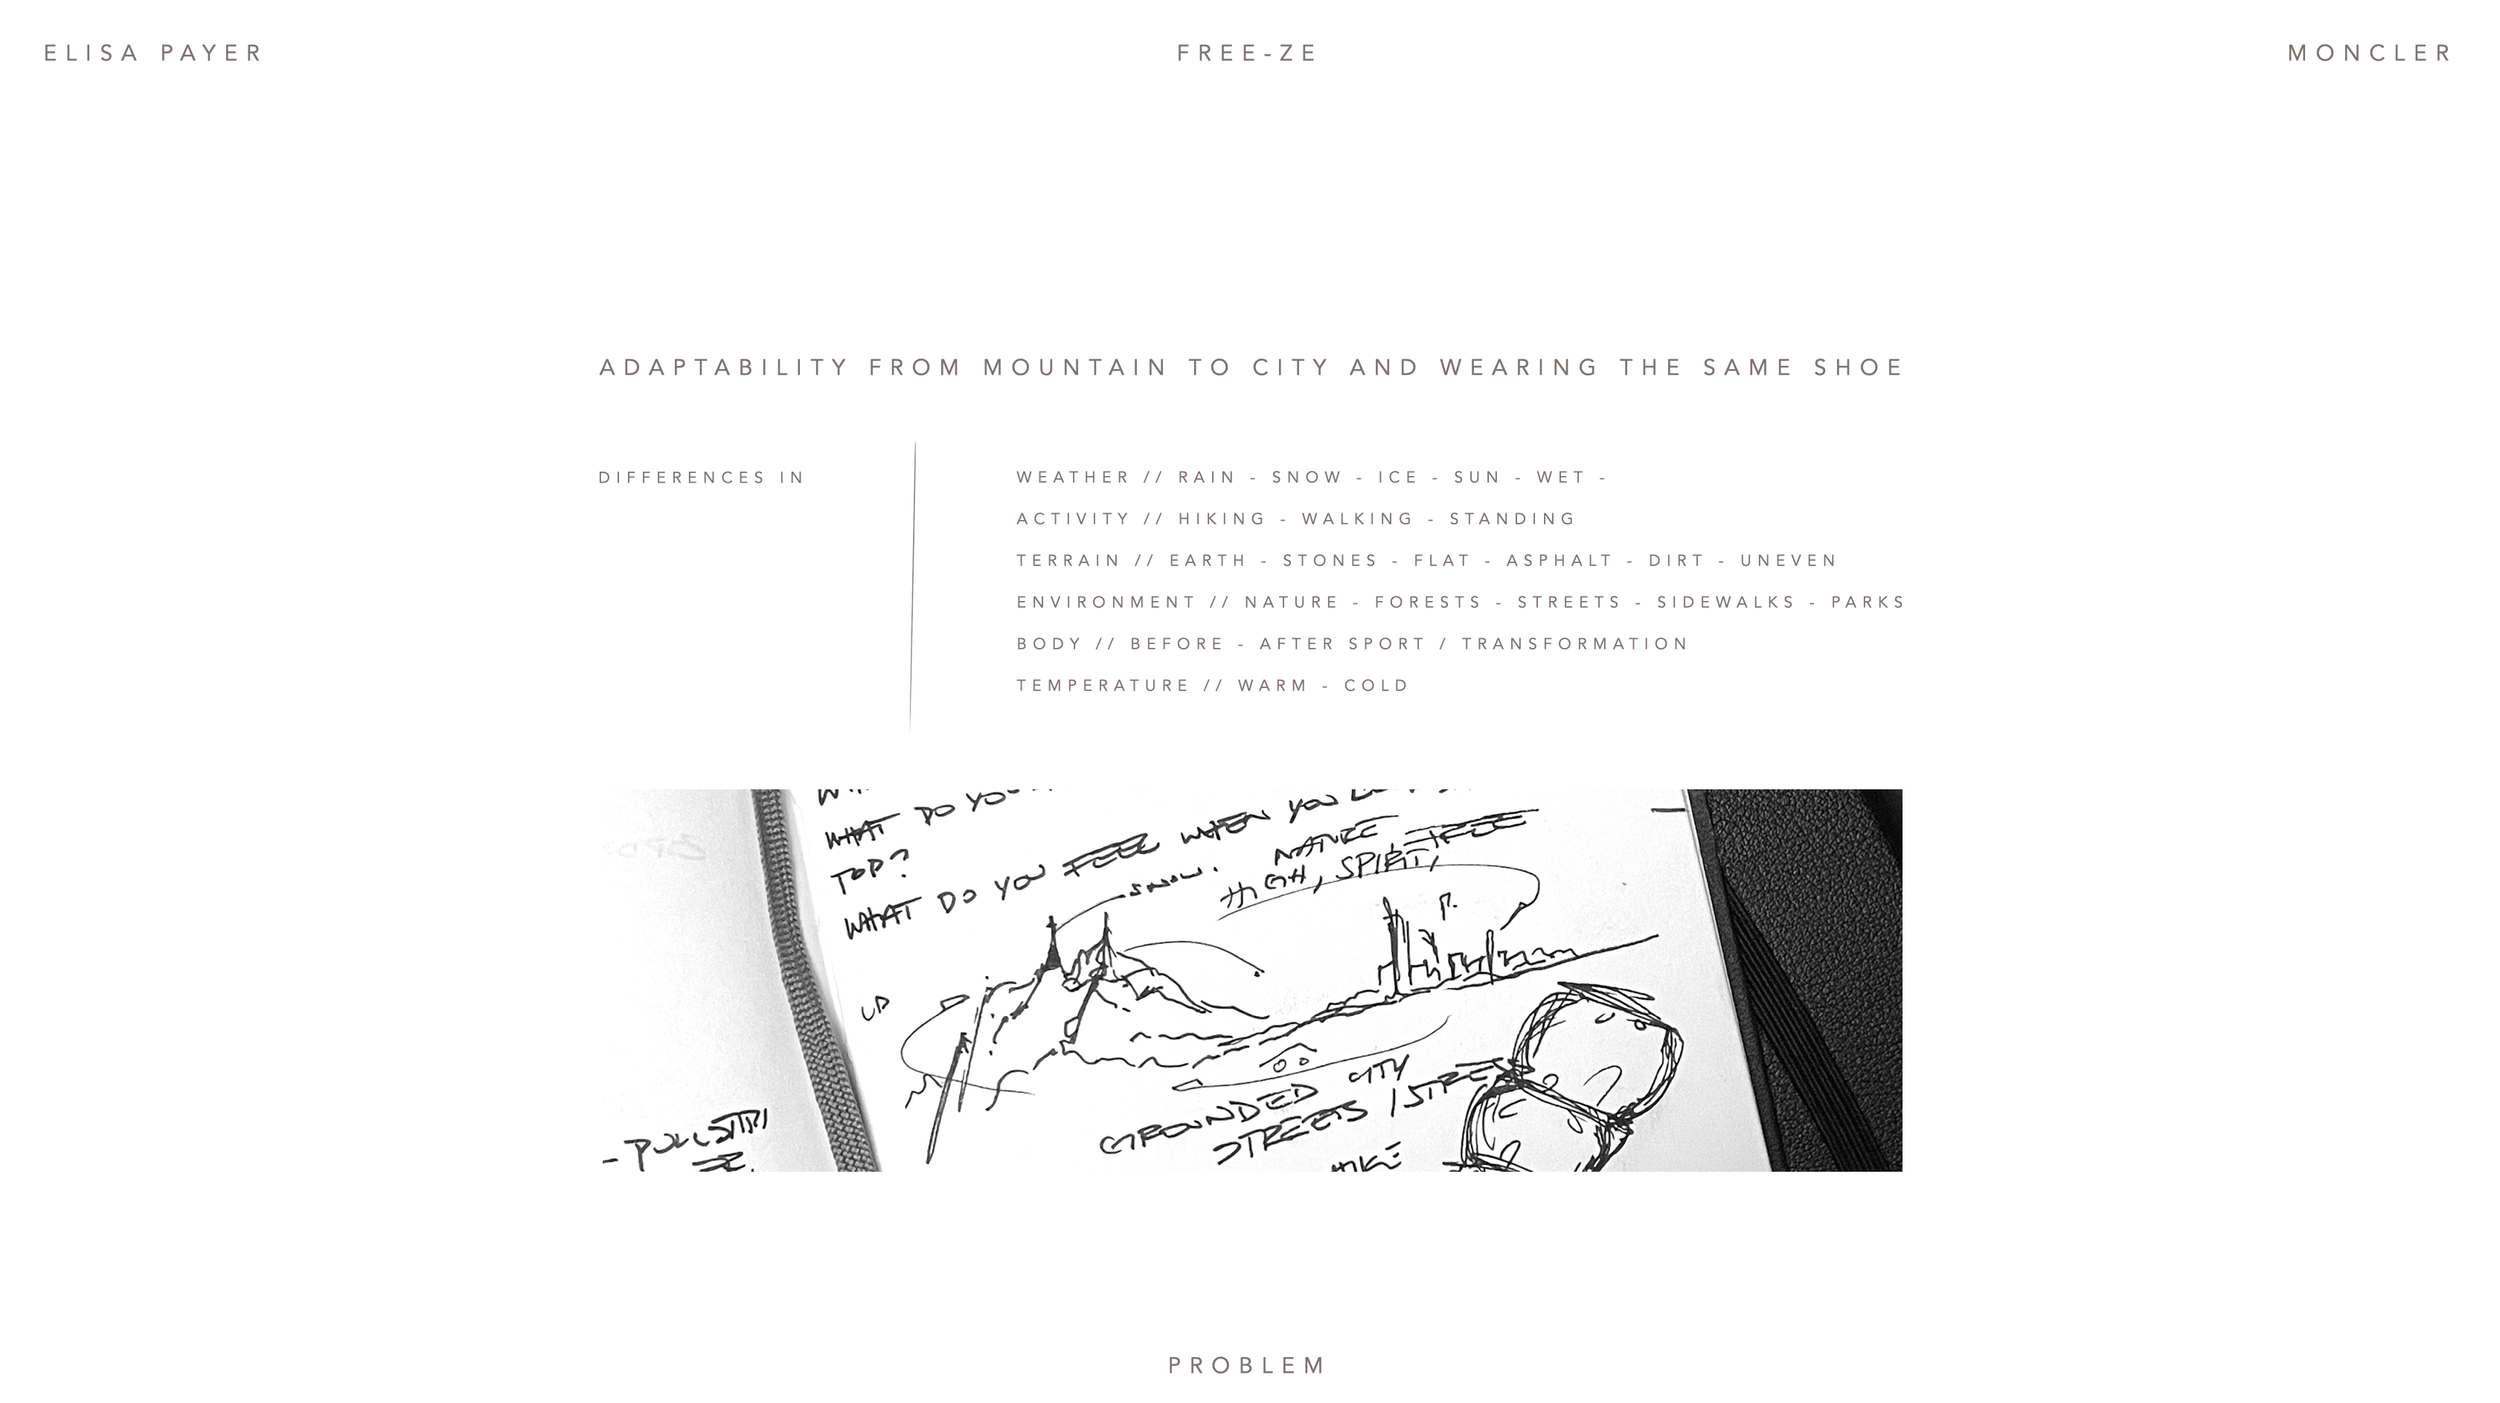 ELISA PAYER
FREE-ZE
MONCLER
ADAPTABILITY FROM MOUNTAIN TO CITY AND WEARING THE SAME SHOE
DIFFERENCES IN
WEATHER // RAIN - SNOW - ICE - SUN - WET -
ACTIVITY // HIKING - WALKING - STANDING
TERRAIN // EARTH - STONES - FLAT - ASPHALT - DIRT - UNEVEN
ENVIRONMENT // NATURE - FORESTS - STREETS - SIDEWALKS - PARKS
BODY // BEFORE - AFTER SPORT / TRANSFORMATION
TEMPERATURE // WARM - COLD
WHAT DO YOU
TOP?
WHAT DO YOU FEEL WHEN YOU
SNOW.
HIGH, SPIRIT
UP
GROUNDED CITY
STREETS /
HIKE
PROBLEM